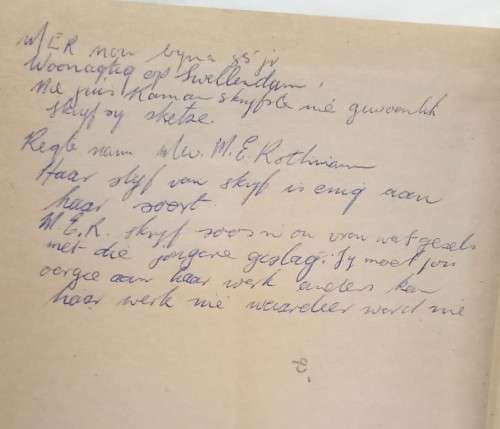 MER nou byna 85 jr
Woonagtig op Swellendam.
Nie juis Roman skryfster nie gewoonlik
skryf sy sketse.
Regte naam Mev. M.E. Rothmann
Haar styl van skryf is enig aan
haar soort.
M.E.R. skryf soos 'n ou vrou wat gesels
met die jongere geslag. Sy moet jou
oorgee aan haar werk anders kan
haar werk nie waardeer word nie